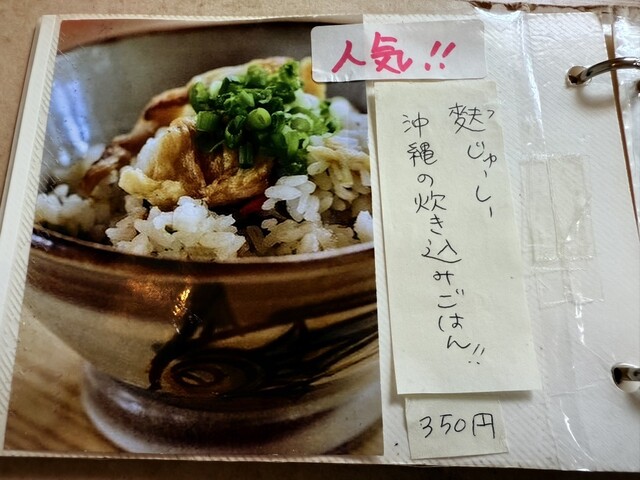 人気!!
麩じゅーしー
沖縄の炊き込みごはん!!
350円